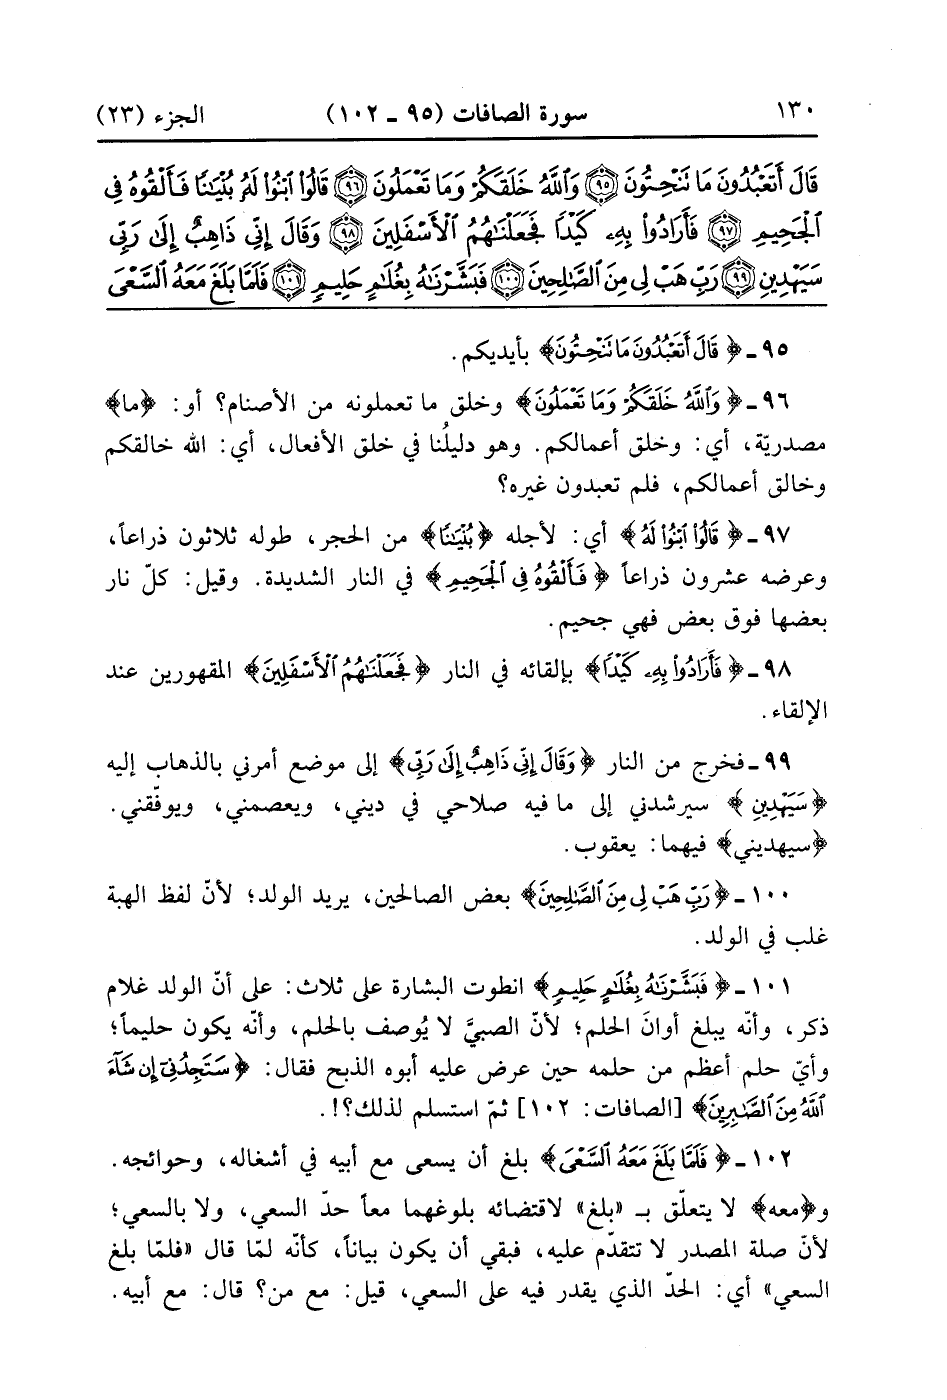 ١٣٠ سورة الصافات (٩٥ ـ ١٠٢) الجزء (٢٣)
قَالَ أَتَعْبُدُونَ مَا نَنْحِتُونَ ﴿٩٥﴾ وَٱللَّهُ خَلَقَكُمْ وَمَا تَعْمَلُونَ ﴿٩٦﴾ قَالُوا۟ ٱبْنُوا۟ لَهُۥ بُنْيَـٰنًا فَأَلْقُوهُ فِى
ٱلْجَحِيمِ ﴿٩٧﴾ فَأَرَادُوا۟ بِهِۦ كَيْدًا فَجَعَلْنَـٰهُمُ ٱلْأَسْفَلِينَ ﴿٩٨﴾ وَقَالَ إِنِّى ذَاهِبٌ إِلَىٰ رَبِّى
سَيَهْدِينِ ﴿٩٩﴾ رَبِّ هَبْ لِى مِنَ ٱلصَّـٰلِحِينَ ﴿١٠٠﴾ فَبَشَّرْنَـٰهُ بِغُلَـٰمٍ حَلِيمٍ ﴿١٠١﴾ فَلَمَّا بَلَغَ مَعَهُ ٱلسَّعْىَ
٩٥ ـ ﴿قَالَ أَتَعْبُدُونَ مَا نَنْحِتُونَ﴾ بأيديكم.
٩٦ ـ ﴿وَٱللَّهُ خَلَقَكُمْ وَمَا تَعْمَلُونَ﴾ وخلق ما تعملونه من الأصنام؟ أو: ﴿ما﴾
مصدريّة، أي: وخلق أعمالكم. وهو دليلُنا في خلق الأفعال، أي: الله خالقكم
وخالق أعمالكم، فلم تعبدون غيره؟
٩٧ ـ ﴿قَالُوا۟ ٱبْنُوا۟ لَهُ﴾ أي: لأجله ﴿بُنْيَـٰنًا﴾ من الحجر، طوله ثلاثون ذراعاً،
وعرضه عشرون ذراعاً ﴿فَأَلْقُوهُ فِى ٱلْجَحِيمِ﴾ في النار الشديدة. وقيل: كلّ نار
بعضها فوق بعض فهي جحيم.
٩٨ ـ ﴿فَأَرَادُوا۟ بِهِۦ كَيْدًا﴾ بإلقائه في النار ﴿فَجَعَلْنَـٰهُمُ ٱلْأَسْفَلِينَ﴾ المقهورين عند
الإلقاء.
٩٩ ـ فخرج من النار ﴿وَقَالَ إِنِّى ذَاهِبٌ إِلَىٰ رَبِّى﴾ إلى موضع أمرني بالذهاب إليه
﴿سَيَهْدِينِ﴾ سيرشدني إلى ما فيه صلاحي في ديني، ويعصمني، ويوفّقني.
﴿سيهديني﴾ فيهما: يعقوب.
١٠٠ ـ ﴿رَبِّ هَبْ لِى مِنَ ٱلصَّـٰلِحِينَ﴾ بعض الصالحين، يريد الولد؛ لأنّ لفظ الهبة
غلب في الولد.
١٠١ ـ ﴿فَبَشَّرْنَـٰهُ بِغُلَـٰمٍ حَلِيمٍ﴾ انطوت البشارة على ثلاث: على أنّ الولد غلام
ذكر، وأنّه يبلغ أوانَ الحلم؛ لأنّ الصبيَّ لا يُوصف بالحلم، وأنّه يكون حليماً؛
وأيّ حلم أعظم من حلمه حين عرض عليه أبوه الذبح فقال: ﴿سَتَجِدُنِىٓ إِن شَآءَ
ٱللَّهُ مِنَ ٱلصَّـٰبِرِينَ﴾ [الصافات: ١٠٢] ثمّ استسلم لذلك؟!.
١٠٢ ـ ﴿فَلَمَّا بَلَغَ مَعَهُ ٱلسَّعْىَ﴾ بلغ أن يسعى مع أبيه في أشغاله، وحوائجه.
و﴿معه﴾ لا يتعلّق بـ «بلغ» لاقتضائه بلوغهما معاً حدّ السعي، ولا بالسعي؛
لأنّ صلة المصدر لا تتقدّم عليه، فبقي أن يكون بياناً، كأنّه لمّا قال «فلمّا بلغ
السعي» أي: الحدّ الذي يقدر فيه على السعي، قيل: مع من؟ قال: مع أبيه.